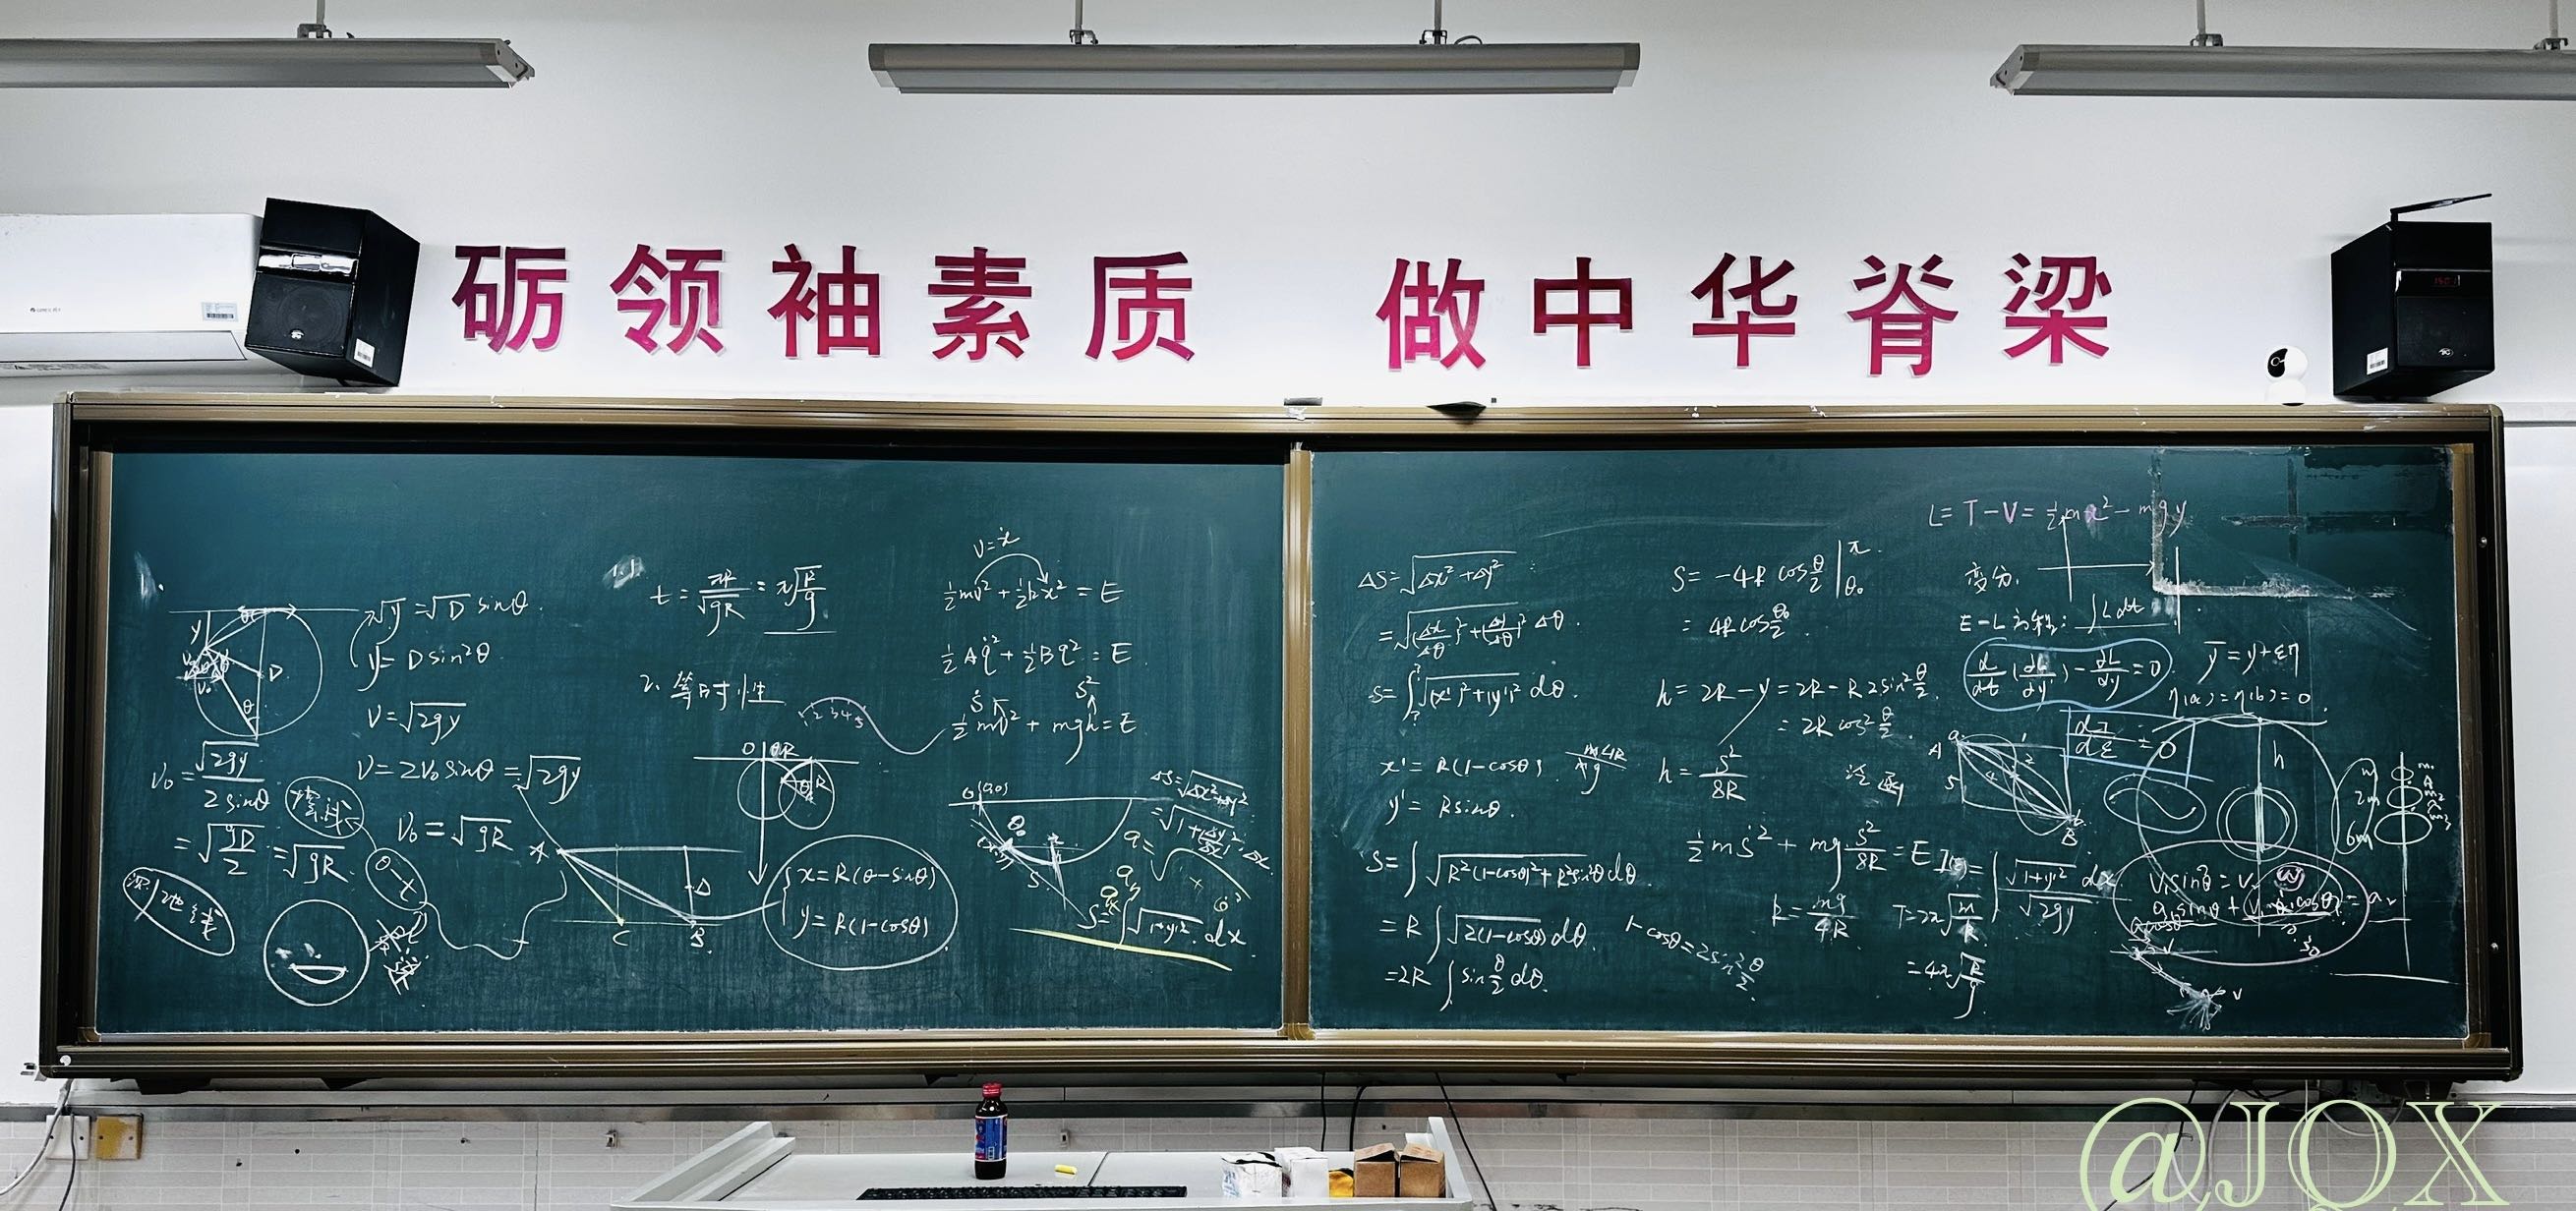 砺领袖素质 做中华脊梁
1.
√y = √D sinθ.
y = D sin²θ
V = √2gy
V₀ = √2gy / 2sinθ
V = 2V₀ sinθ = √2gy
= √(gD/2) = √gR
V₀ = √gR
θ-t
滚地线
A
C
B
D
1.1
t = πR/√gR = π√(R/g)
2. 等时性
1 2 3 4 5
O θR
θ R
x = R(θ-sinθ)
y = R(1-cosθ)
V = ẋ
½mv² + ½kx² = E
½Aq̇² + ½Bq² = E
Ṡ S²
½mv² + mgh = E
θ₀
S
ΔS = √Δx²+Δy²
= √1+(Δy/Δx)² · Δx
S = ∫ √1+y'² dx
ΔS = √Δx²+Δy²
= √(Δx/Δθ)²+(Δy/Δθ)² Δθ.
S = ∫ √(x')²+(y')² dθ.
x' = R(1-cosθ).
y' = Rsinθ.
S = ∫ √R²(1-cosθ)²+R²sin²θ dθ.
= R ∫ √2(1-cosθ) dθ.
= 2R ∫ sin θ/2 dθ.
1-cosθ = 2sin² θ/2.
S = -4R cos θ/2 |π θ₀
= 4R cos θ₀/2.
h = 2R-y = 2R-R2sin² θ/2.
= 2R cos² θ/2.
h = S²/8R
½mṠ² + mg S²/8R = E
k = mg/4R
T = 2π√(m/k)
= 4π√(R/g)
L = T-V = ½mẋ² - mgy
变分.
E-L方程: ∫L dt
d/dt (dL/dy') - dL/dy = 0
ȳ = y+εη
η(a) = η(b) = 0
dI/dε = 0
A
B
h
m
2m
6m
∫ √1+y'² / √2gy dx
V₁sinθ = V₂
@JQX